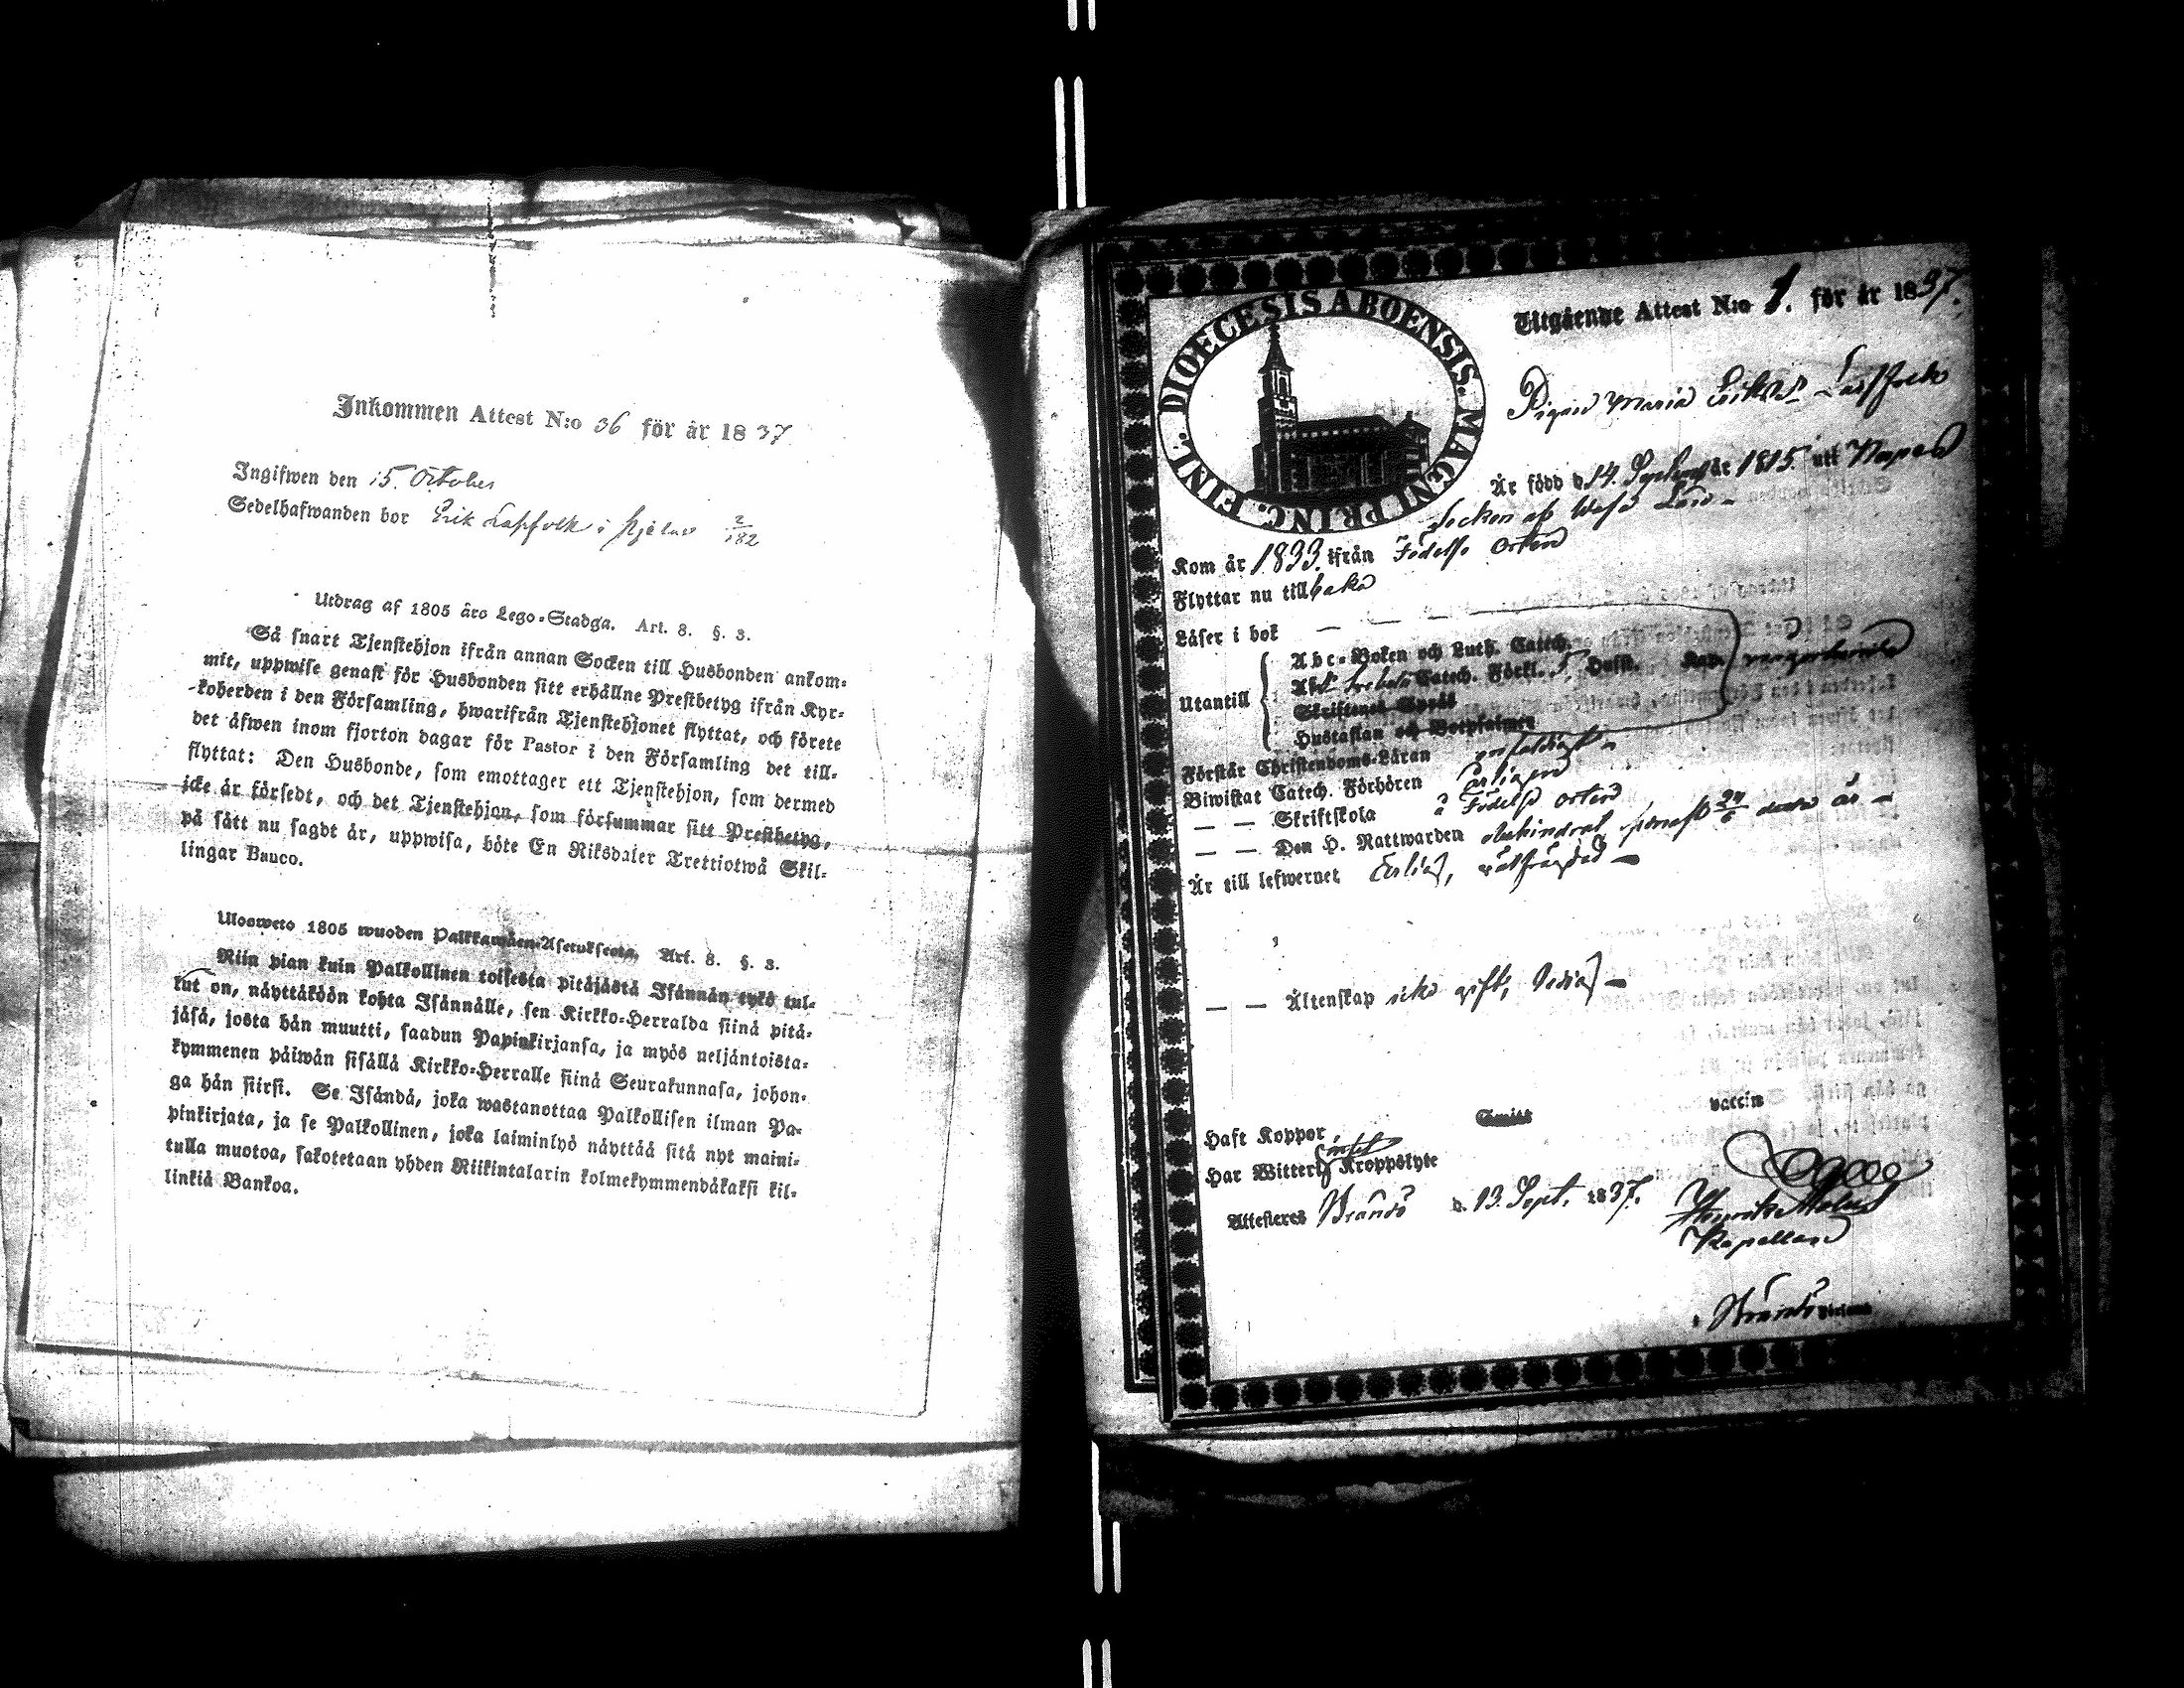 Inkommen Attest N:o 36 för år 1837
Ingifwen den 15. October
Sedelhafwanden bor Erik Lappfolk i 2/182
Utdrag af 1805 års Lego-Stadga. Art. 8. §. 3.
Så snart Tjenstehjon ifrån annan Socken till Husbonden ankom-
mit, uppwise genast för Husbonden sitt erhållne Prestbetyg ifrån Kyr-
koherden i den Församling, hwarifrån Tjenstehjonet flyttat, och förete
det äfwen inom fjorton dagar för Pastor i den Församling det till-
flyttat: Den Husbonde, som emottager ett Tjenstehjon, som dermed
icke är försedt, och det Tjenstehjon, som försummar sitt Prestbetyg,
på sått nu sagdt är, uppwisa, böte En Riksdaler Trettiotwå Skil-
lingar Banco.
Ulosweto 1805 wuoden Palkkawäen-Asetuksesta. Art. 8. §. 3.
Niin pian kuin Palkollinen toisesta pitäjästä Isännän tykö tul-
lut on, näyttäköön kohta Isännälle, sen Kirkko-Herralda siinä pitä-
jäsä, josta hän muutti, saadun Papinkirjansa, ja myös neljäntoista-
kymmenen päiwän sisällä Kirkko-Herralle siinä Seurakunnasa, johon-
ga hän siirsi. Se Isändä, joka wastanottaa Palkollisen ilman Pa-
pinkirjata, ja se Palkollinen, joka laiminlyö näyttää sitä nyt maini-
tulla muotoa, sakotetaan yhden Riikintalarin kolmekymmendäkaksi kil-
linkiä Bankoa.
DIOECESIS ABOENSIS. MAGNI PRINC. FINL.
Utgående Attest N:o 1. för år 1837.
Pigan Maria Eriksd. Lappfolk
Är född d 14. September år 1815. uti
Socken af Wasa Län
Kom år 1833. ifrån Födelse orten
Flyttar nu tillbaka
Läser i bok
Abc-Boken och Luth. Catech.
Utantill
Catech. Förkl. Hust. Kap.
Skriftenes Språk
Hustaflan och Botpsalmer
Förstår Christendoms-Läran enfaldigt
Biwistat Catech. Förhören årligen
— — Skriftskola i Födelse orten
— — Den H. Nattwarden obehindrat senast 24/6 detta år
Är till lefwernet ärlig,
— — Äktenskap icke gift, ledig
Haft Koppor, vaccin
Har Witterlig Kroppslyte
Attesteras Brändö d. 13. Sept. 1837.
Henrik
Kapellan
i Brändö